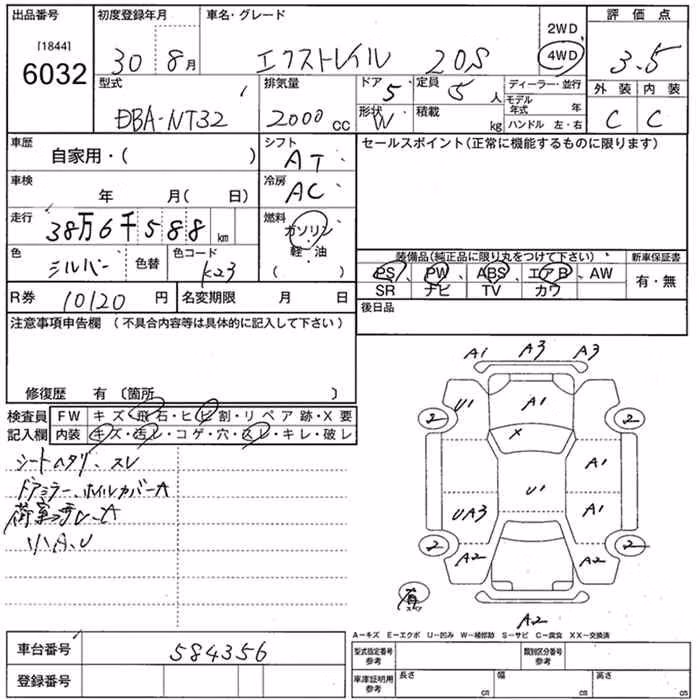 出品番号 初度登録年月 車名・グレード 2WD 評価点
[1844]
6032 30 8月 エクストレイル 20S 4WD 3.5
型式 排気量 ドア 定員 ディーラー・並行 外装 内装
DBA-NT32 2000cc 5 5人 モデル年式 年
形状 積載 C C
W kg ハンドル 左・右
車歴 自家用・( ) シフト セールスポイント(正常に機能するものに限ります)
AT
車検 年 月( 日) 冷房
AC
走行 38万6千588km 燃料
ガソリン
軽・油
( )
色 シルバー 色替 色コード K23
装備品(純正品に限り丸をつけて下さい) 新車保証書
PS、PW、ABS、エアB、AW 有・無
SR ナビ TV カワ
R券 10120円 名変期限 月 日 後日品
注意事項申告欄(不具合内容等は具体的に記入して下さい)
修復歴 有〔箇所 〕
検査員 FW キズ・飛石・ヒビ割・リペア跡・X要
記入欄 内装 キズ・汚レ・コゲ・穴・スレ・キレ・破レ
シートヘタリ、スレ
ドアミラー、ホイルカバーA
小A、U
A1 A3 A3
U1 A1
2 2
X
A1
U1
UA3 A1
2 2
A2 A2
有
A2
A-キズ E-エクボ U-凹み W-補修跡 S-サビ C-腐食 XX-交換済
車台番号 584356
登録番号
型式指定番号 参考 類別区分番号 参考
車庫証明用 参考 長さ cm 幅 cm 高さ cm